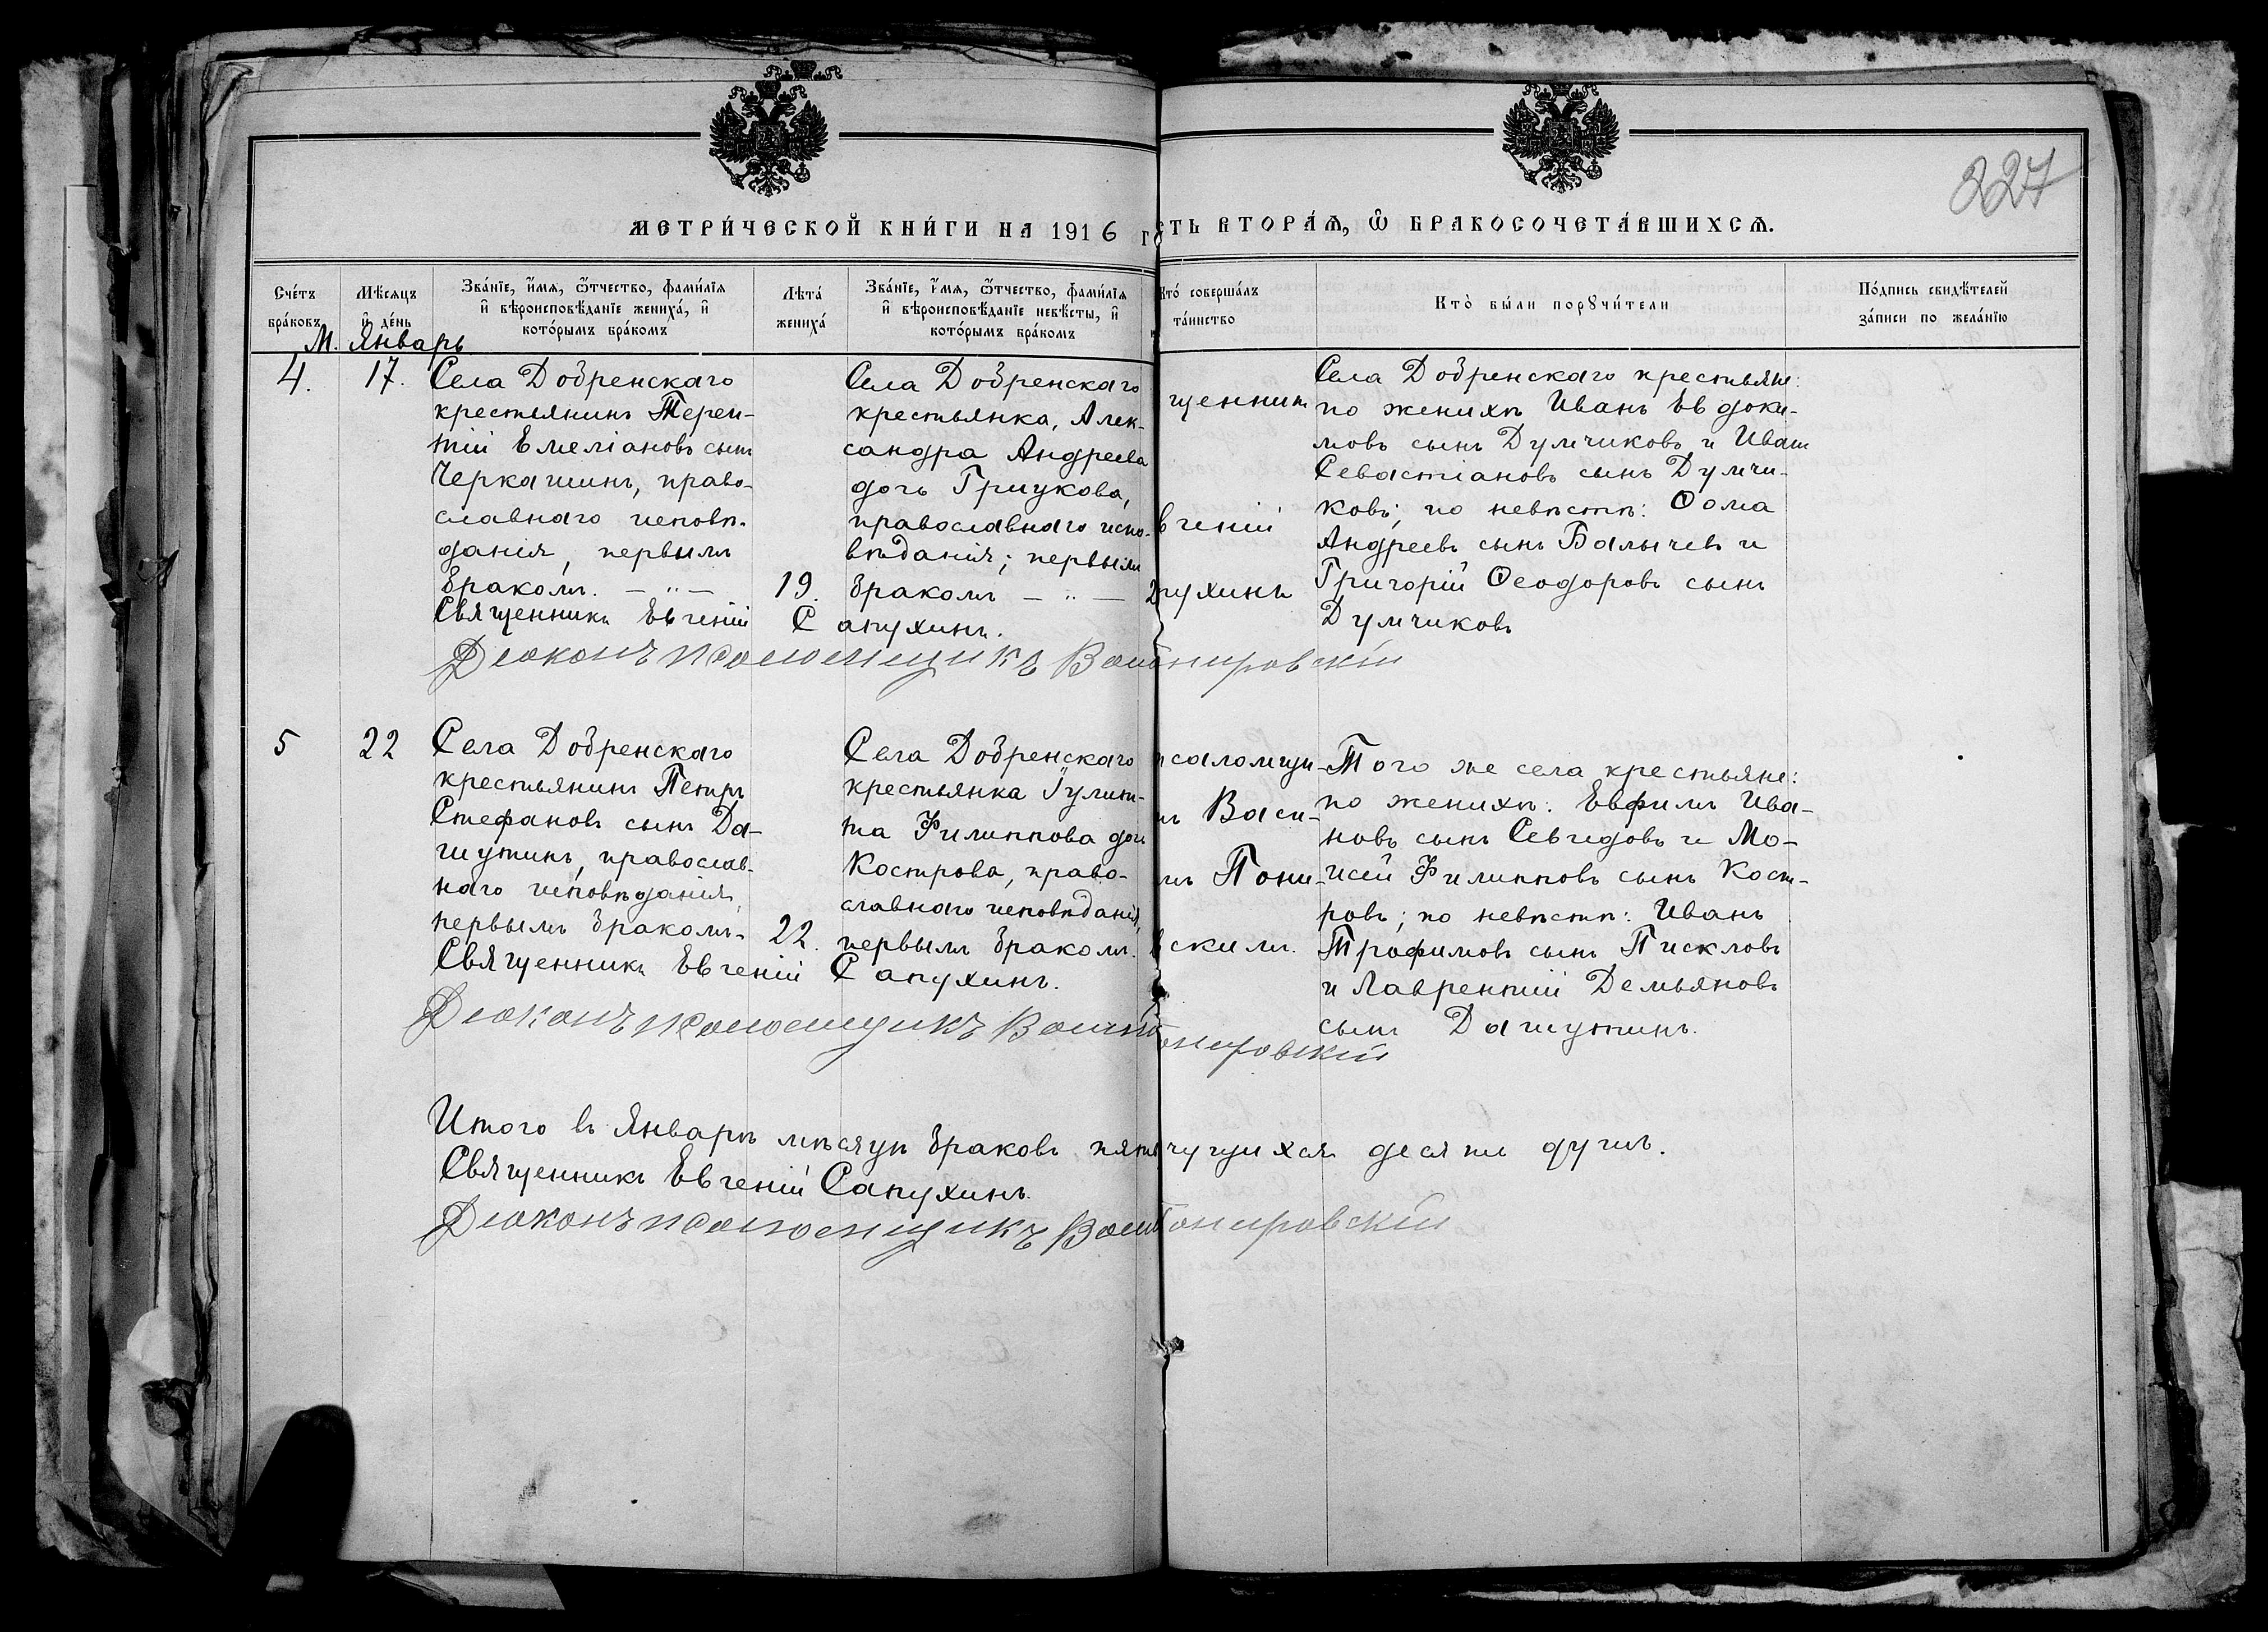 227
МЕТРИ́ЧЕСКОЙ КНИ́ГИ НА 1916 г
СТЬ ВТОРА́Ѧ, Ѿ БРАКОСОЧЕТА́ВШИХСѦ.
Сче́тъ
бра́ковъ
Мѣ́сяцъ
и҆ де́нь
Зва́нїе, и҆́мя, ѻ҆́тчество, фами́лїя
и҆ вѣроисповѣ́данїе жениха́, и҆
кото́рымъ бра́комъ
Лѣта́
жениха́
Зва́нїе, и҆́мя, ѻ҆́тчество, фами́лїя
и҆ вѣроисповѣ́данїе невѣ́сты, и҆
кото́рымъ бра́комъ
кто́ соверша́лъ
та́инство
Кто̀ бы́ли порꙋчи́тели
По́дпись свидѣ́телей
за́писи по жела́нїю
М. Январь
4.
17.
Села Добренскаго
крестьянинъ Терен-
тій Емеліановъ сынъ
Черкашинъ, право-
славнаго исповѣ-
данія, первымъ
бракомъ. — " —
19.
Села Добренскаго
крестьянка, Алек-
сандра Андреева
дочь Грицкова,
православнаго испо-
вѣданія; первымъ
бракомъ — " —
щенник
вгеній
пухинъ
Села Добренскаго крестьяне:
по женихѣ Иванъ Евдоки-
мовъ сынъ Думчиковъ и Иванъ
Севастіановъ сынъ Думчи-
ковъ; по невѣстѣ: Ѳома
Андреевъ сынъ Балычевъ и
Григорій Ѳеодоровъ сынъ
Думчиковъ
Священникъ Евгеній Сапухинъ.
Діаконъ псаломщикъ
5
22
Села Добренскаго
крестьянинъ Петръ
Стефановъ сынъ Да-
шутинъ, православ-
наго исповѣданія,
первымъ бракомъ-
22.
Села Добренскаго
крестьянка Іулит-
та Филиппова дочь
Кострова, право-
славнаго исповѣданія,
первымъ бракомъ.
псаломщи-
мъ Васи-
мъ Пони-
вскимъ.
Того же села крестьяне:
по женихѣ: Евфимъ Ива-
новъ сынъ Севидовъ и Мо-
исей Филипповъ сынъ Кост-
ровъ; по невѣстѣ: Иванъ
Трофимовъ сынъ Писkловъ
и Лаврентій Демьяновъ
сынъ Дашутинъ.
Священникъ Евгеній Сапухинъ.
Діаконъ псаломщикъ
Итого въ Январѣ мѣсяцѣ браковъ пять чущихся десяти душъ.
Священникъ Евгеній Сапухинъ.
Діаконъ псаломщикъ